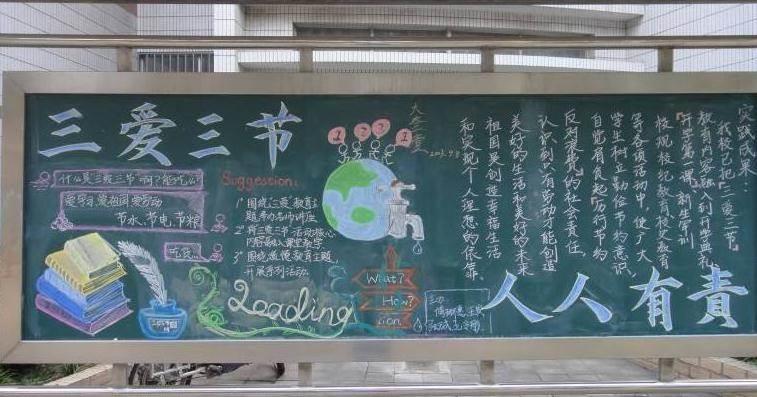 三爱三节
什么是三爱三节啊?能吃么?
爱学习、爱祖国、爱劳动
节水、节电、节粮
吃货
Suggestion:
1° 围绕"三爱"教育主
题举办名师讲座
2° 将三爱三节活动核心
内容融入课堂教学
3° 围绕道德教育主题
开展系列活动
1 2 3 1
Leading
What?
How?
实践成果:
我校已把"三爱三节"
教育内容融入到开学典礼
"开学第一课"新生军训
校规校纪教育校史教育
等各项活动中,使广大
学生树立勤俭节约意识,
自觉肩负起厉行节约
反对浪费的社会责任,
认识到只有劳动才能创造
美好的生活和美好的未来
祖国是创造幸福生活
和实现个人理想的依靠
人人有責